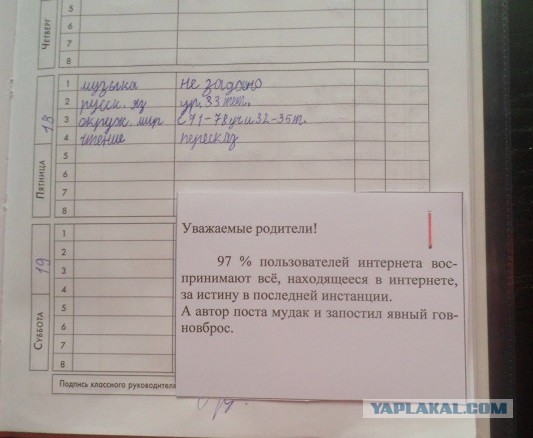 ЧЕТВЕРГ
5
6
7
8
ПЯТНИЦА 18
1 музыка не задано
2 русск. яз ур. 33 тет.
3 окруж. мир с 71-78 уч и 32-35 т.
4 чтение пересказ
5
6
7
8
СУББОТА 19
1
2
3
4
5
6
7
8
Подпись классного руководителя
Уважаемые родители!
97 % пользователей интернета вос-
принимают всё, находящееся в интернете,
за истину в последней инстанции.
А автор поста мудак и запостил явный гов-
новброс.
YAPLAKAL.COM